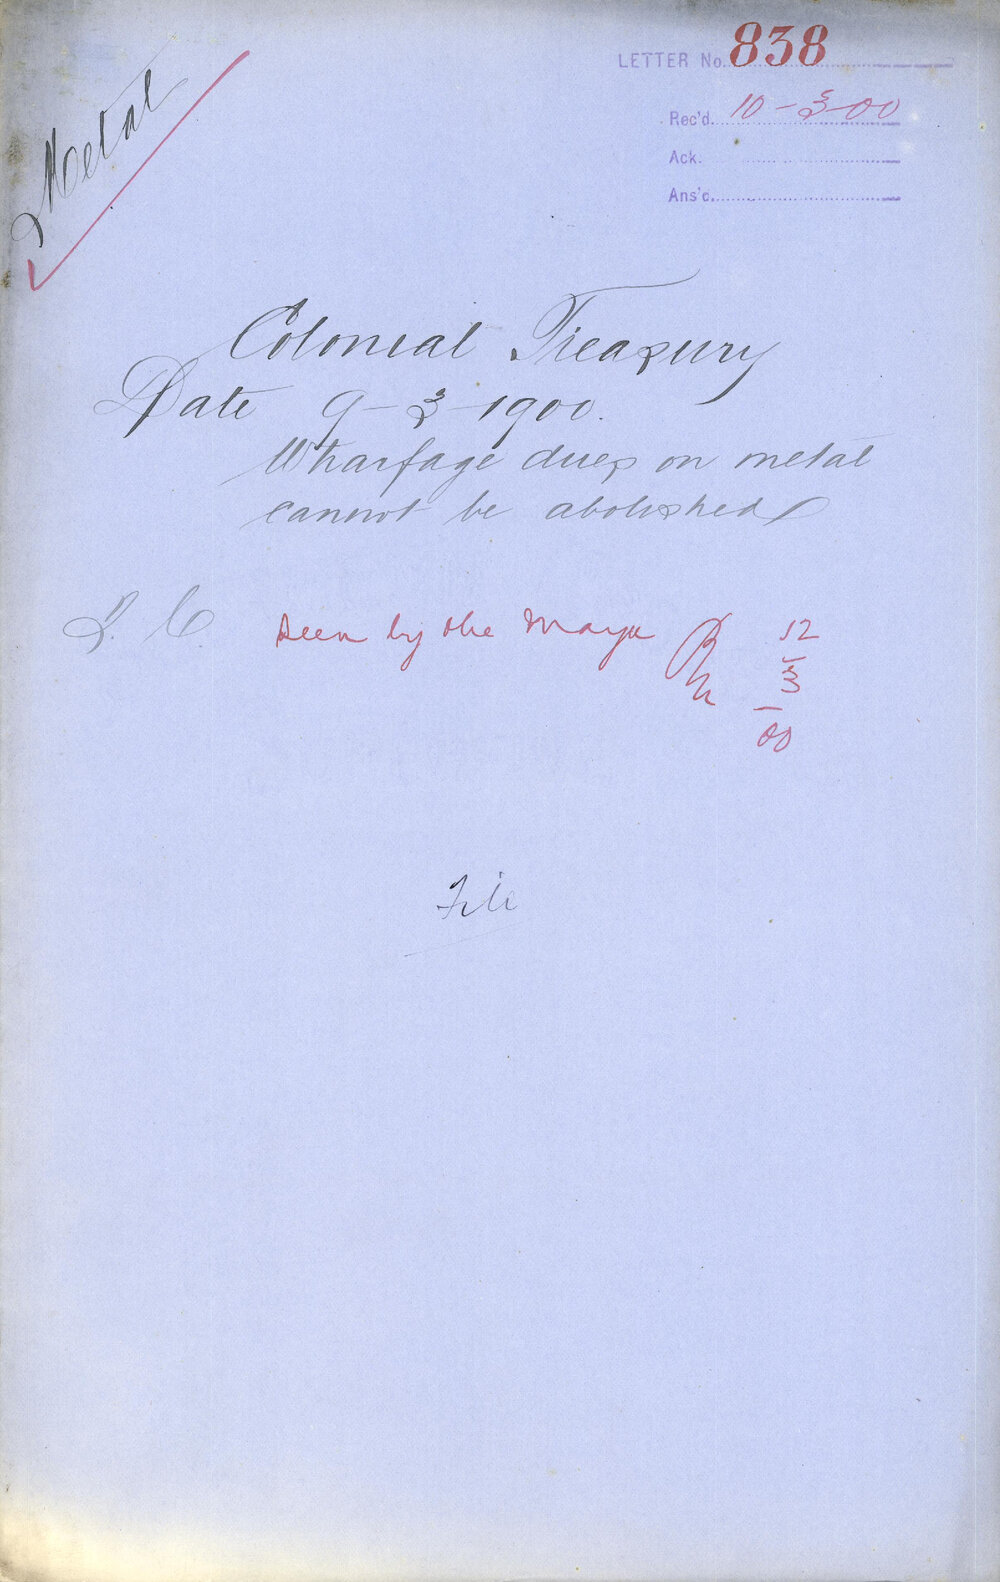 Metal
LETTER No. 838
Rec'd. 10-3-00
Ack.
Ans'd.
Colonial Treasury
Date 9-3-1900.
Wharfage dues on metal
cannot be abolished
L. C. Seen by the Mayor 12
3
00
File